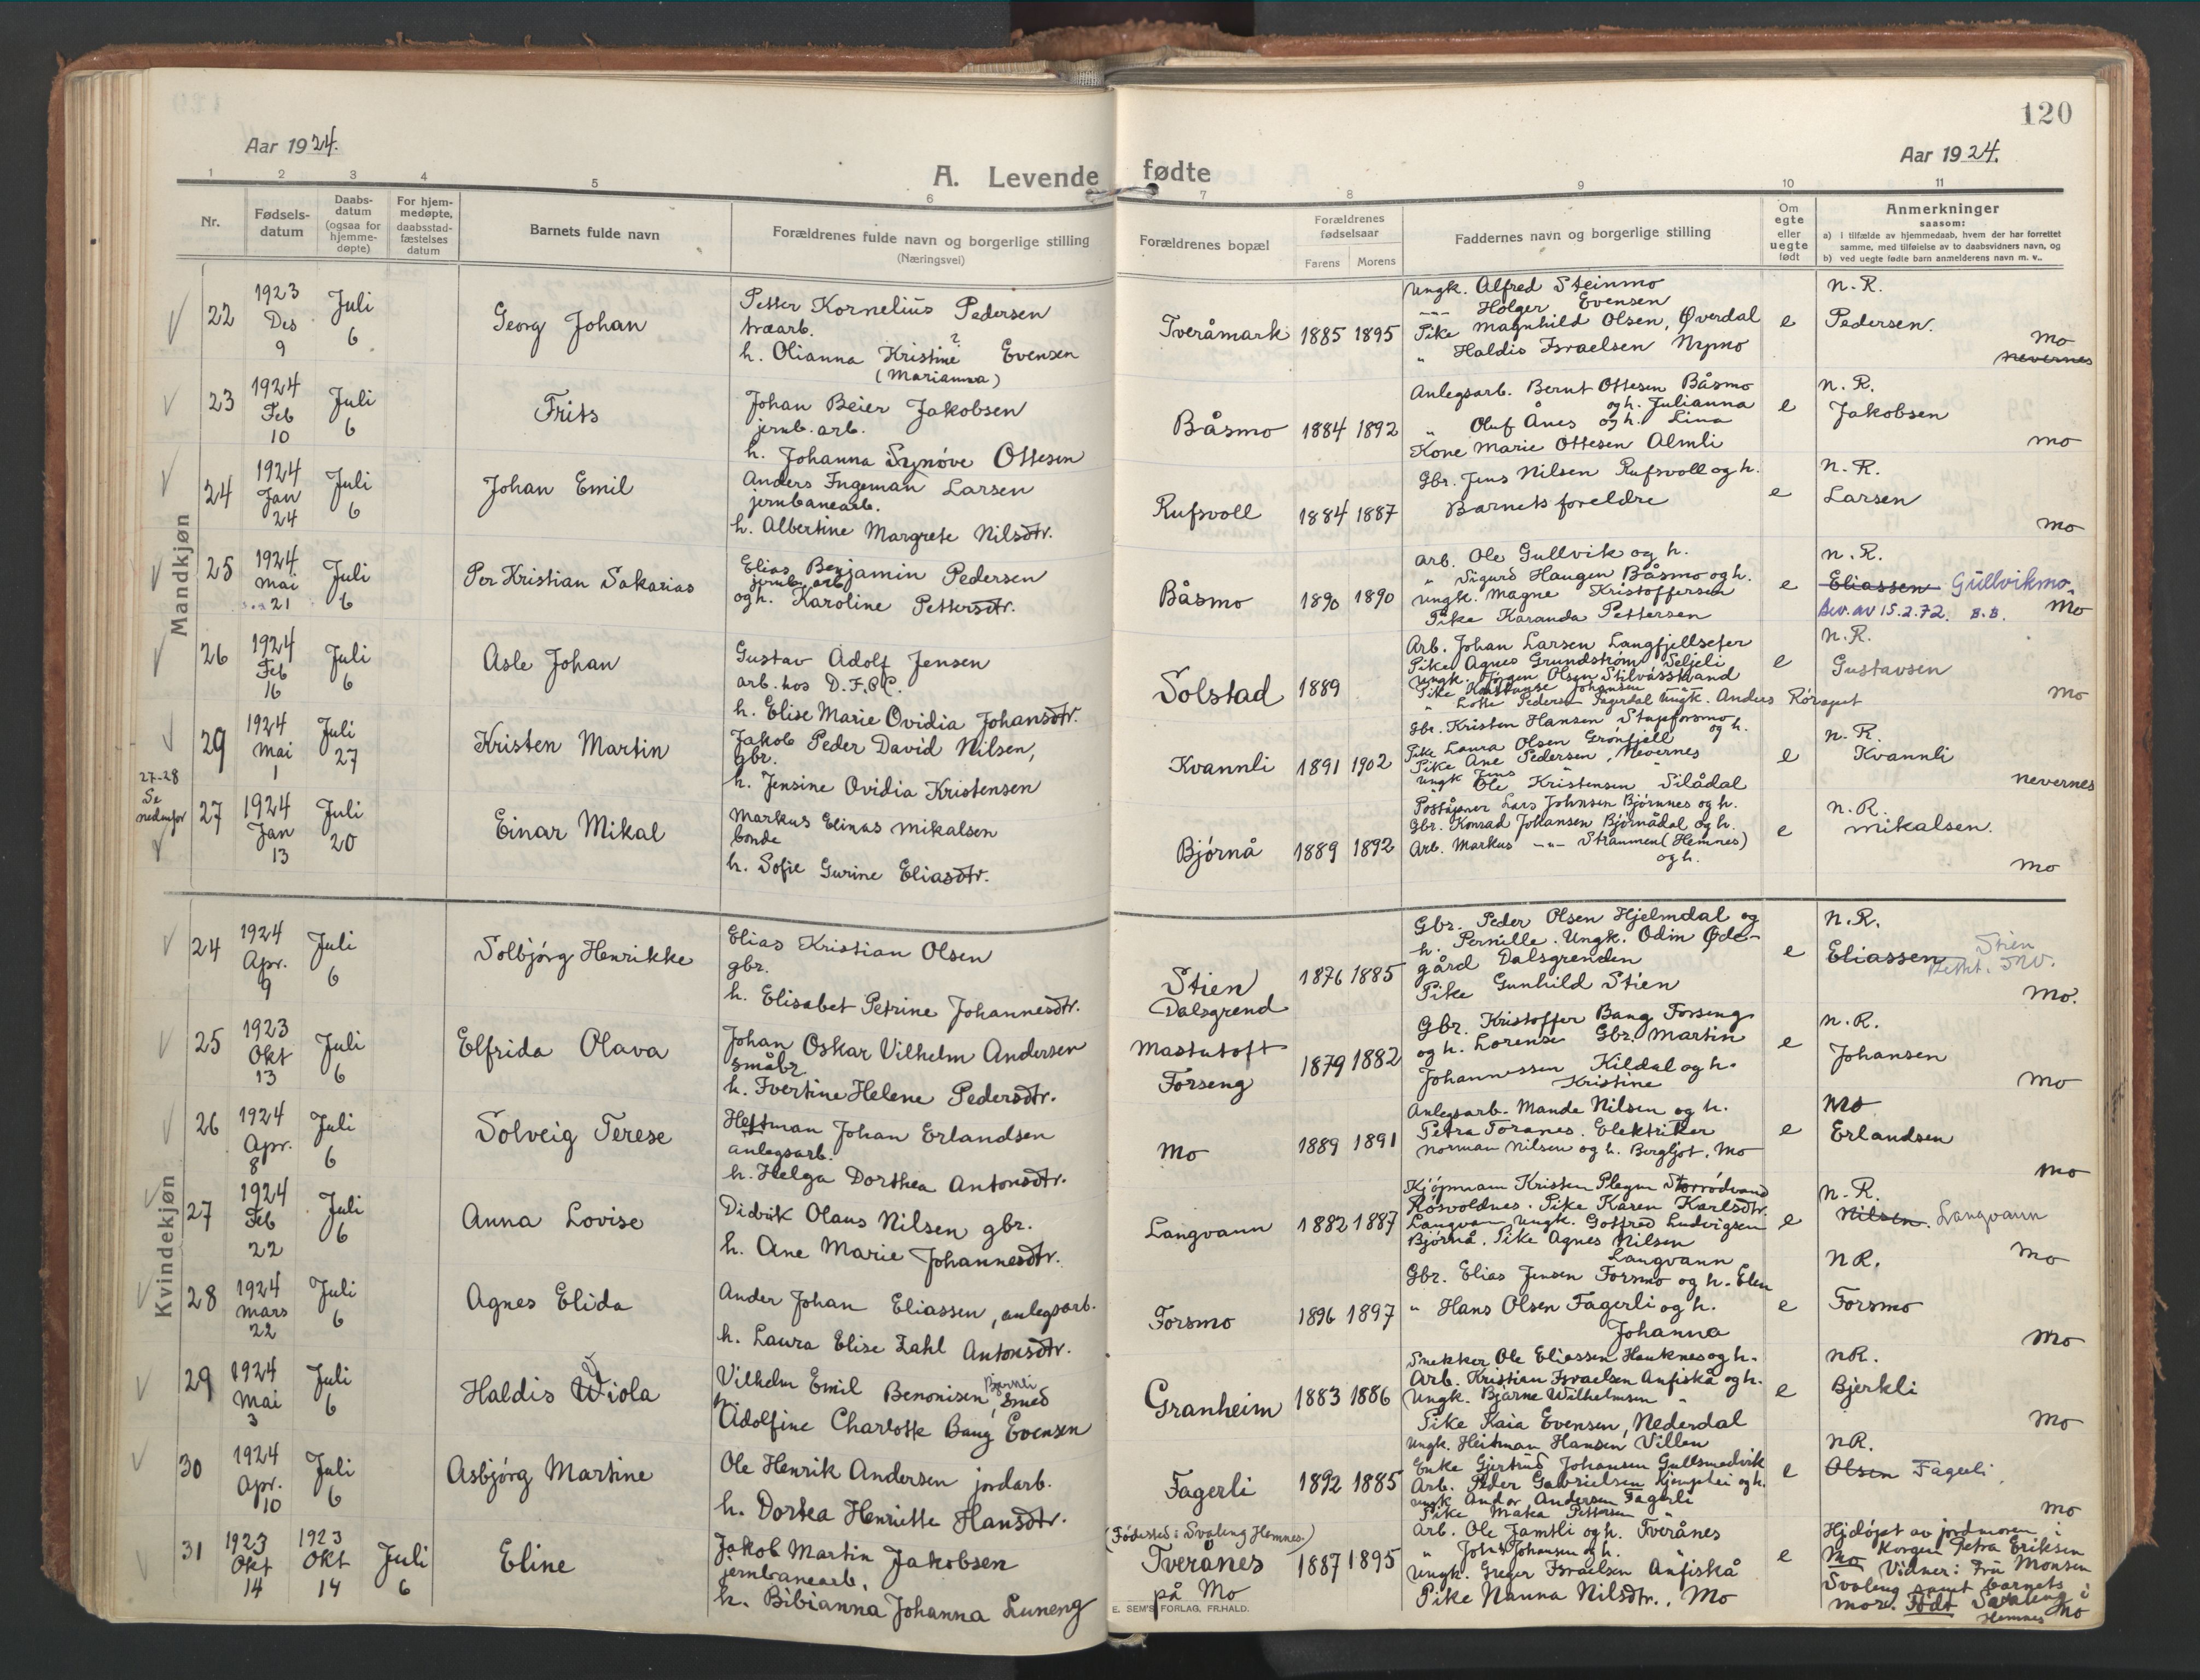 120
Aar 1924.
Aar 1924.
A. Levende fødte
1 2 3 4 5 6 7 8 9 10 11
Nr.
Fødsels-
datum
Daabs-
datum
(ogsaa for
hjemme-
døpte)
For hjem-
medøpte,
daabsstad-
fæstelses
datum
Barnets fulde navn
Forældrenes fulde navn og borgerlige stilling
(Næringsvei)
Forældrenes bopæl
Forældrenes
fødselsaar
Farens Morens
Faddernes navn og borgerlige stilling
Om
egte
eller
uegte
født
Anmerkninger
saasom:
a) i tilfælde av hjemmedaab, hvem der har forrettet
samme, med tilføielse av to daabsvidners navn, og
b) ved uegte fødte barn anmelderens navn m. v..
Mandkjøn
22
1923
Des
9
Juli
6
Georg Johan
Petter Kornelius Pedersen
træarb.
h. Olianna Kristine ? Evensen
(Marianna)
Tveråmark 1885 1895
Ungk. Alfred Steinmo
Holger Evensen
Pike Magnhild Olsen, Øverdal
" Haldis Israelsen Nymo
e
n. R.
Pedersen.
Mo
Nevernes
23
1924
Feb
10
Juli
6
Frits
Johan Beier Jakobsen
jernb. arb.
h. Johanna Synøve Ottesen
Båsmo 1884 1892
Anlegsarb. Bernt Ottesen Båsmo
og h. Julianna
" Oluf Ånes og h. Lina
Kone Marie Ottesen Almli
e
n. R.
Jakobsen
Mo
24
1924
Jan
24
Juli
6
Johan Emil
Anders Ingeman Larsen
jernbanearb.
h. Albertine Margrete Nilsdtr.
Rufsvoll 1884 1887
Gbr. Jens Nilsen Rufsvoll og h.
Barnets foreldre
e
n. R.
Larsen
Mo
25
1924
Mai
21
Juli
6
Per Kristian Sakarias
Elias Benjamin Pedersen
jernb. arb
og h. Karoline Pettersdtr.
Båsmo 1890 1890
Arb. Ole Gullvik og h.
" Sigurd Haugen Båsmo og h.
Ungk. Magne Kristoffersen
Pike Karanda Pettersen
e
n. R.
Eliassen Gullvikmo.
Bev. av 15.2.72. B.B. Mo
26
1924
Feb
16
Juli
6
Asle Johan
Gustav Adolf Jensen
arb. hos D. F. & C.
h. Elise Marie Ovidia Johansdtr.
Solstad 1889
Arb. Johan Larsen Langfjellseter
Pike Agnes Grundstrøm Seljeli
Ungk. Jørgen Olsen Stilvasstrand
Pike Johansen
" Lotte Pedersen Fagerdal Ungk. Anders
e
n. R.
Gustavsen
Mo
29
1924
Mai
1
Juli
27
Kristen Martin
Jakob Peder David Nilsen,
gbr.
h. Jensine Ovidia Kristensen
Kvannli 1891 1902
Gbr. Kristen Hansen Stupforsmo og h.
Pike Laura Olsen Grønfjell
Pike Ane Pedersen, Nevernes
Ungk Jens
Ole Kristensen Silådal
e
n. R.
Kvannli
Nevernes
27-28
Se
nedenfor
27
1924
Jan
13
Juli
20
Einar Mikal
Markus Elinas Mikalsen
bonde
h. Sofie Gurine Eliasdtr.
Bjørnå 1889 1892
Poståpner Lars Johnsen Bjørnnes og h.
Gbr. Konrad Johansen Bjørnådal og h.
Arb. Markus -"- Straumen (Hemnes)
og h.
e
n. R.
Mikalsen.
Mo
Kvindekjøn
24
1924
Apr.
9
Juli
6
Solbjørg Henrikke
Elias Kristian Olsen
gbr.
h. Elisabet Petrine Johannesdtr.
Stien
Dalsgrend
1876 1885
Gbr. Peder Olsen Hjelmdal og
h. Pernille. Ungk. Odin Øde-
gård Dalsgrenden
Pike Gunhild Stien
e
n. R.
Eliassen Stien
Mo.
25
1923
Okt
13
Juli
6
Elfrida Olava
Johan Oskar Vilhelm Andersen
småbr.
h. Ivertine Helene Pedersdtr.
Mastutoft
Forseng
1879 1882
Gbr. Kristoffer Bang Forseng
og h. Lorense Gbr. Martin
Johannessen Kildal og h.
Kristine
e
n. R.
Johansen
Mo
26
1924
Apr.
8
Juli
6
Solveig Terese
Hettman Johan Erlandsen
anlegsarb.
h. Helga Dorthea Antonsdtr.
Mo 1889 1891
Anlegsarb. Mande Nilsen og h.
Petra Toranes. Elektriker
Norman Nilsen og h. Bergljot, Mo
e
Mo
Erlandsen
Mo
27
1924
Feb
22
Juli
6
Anna Lovise
Didrik Olaus Nilsen gbr.
h. Ane Marie Johannesdtr.
Langvann 1882 1887
Kjøpmann Kristen Plegm Storrødvand
Røsvoldnes. Pike Karen Karlsdtr.
Langvan, Ungk. Gotfred Ludvigsen
Bjørnå. Pike Agnes Nilsen
Langvann
e
n. R.
Nilsen. Langvann
Mo
28
1924
Mars
22
Juli
6
Agnes Elida
Ander Johan Eliassen, anlegsarb.
h. Laura Elise Zahl Antonsdtr.
Forsmo 1896 1897
Gbr. Elias Jensen Forsmo og h. Elen
" Hans Olsen Fagerli og h.
Johanna
e
n R.
Forsmo
Mo
29
1924
Mai
3
Juli
6
Haldis Wiola
Vilhelm Emil Benonisen Bjerkli, Smed
h.
Adolfine Charlotte Bang Evensen
Granheim 1883 1886
Snekker Ole Eliassen Hauknes og h.
Arb. Kristian Israelsen Anfiskå og h.
Ungk. Bjarne Wilhelmsen "
Pike Kaia Evensen, Nederdal
e
n R.
Bjerkli
Mo
30
1924
Apr.
10
Juli
6
Asbjørg Martine
Ole Henrik Andersen jordarb.
h. Dortea Henriette Hansdtr.
Fagerli 1892 1885
Ungk. Heitman Hansen Villen
Enke Gjertrud Johansen Gullsmedvik
Arb. Peder Gabrielsen og h.
Ungk Andor Andersen Fagerli
Pike Matea Pettersen "
e
n R.
Olsen Fagerli
Mo
31
1923
Okt
14
1923
Okt
14
Juli
6
Eline
Jakob Martin Jakobsen
jernbanearb.
h. Bibianna Johanna Luneng
(Fødested: Svaleng Hemnes.)
Tverånes
på Mo
1887 1895
Arb. Ole Jamtli og h. Tverånes
" John Johansen og h. "
Ungk. Greger Israelsen Anfiskå
Pike Nanna Nilsdtr., Mo
e
Hjdøpt av jordmoren i
Korgen Petra Eriksen
Mo Vidner: Fru Monsen
Svaleng samt barnets
mor. Født Svaleng i
Hemnes Mo
E. SEM'S FORLAG, FR.HALD.